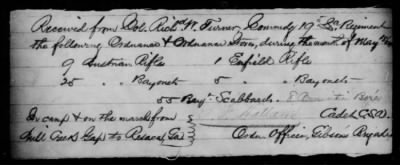 Received from Col. Rich'd W. Turner Commdg 19th Ga Regiment
the following Ordnance & Ordnance Stores, during the month of May
9 Austrian Rifle 1 Enfield Rifle
25 " Bayonets 5 " Bayonets
55 Bayt Scabbards.
In camp & on the march from
Mill Creek Gap to Resaca Ga Cadet C.S.A.
Ordn. Officer, Gibsons Brigade